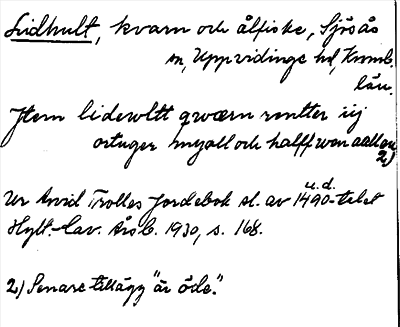 Lidhult, kvarn och ålfiske, Sjösås
sn, Uppvidinge hd, Kronob.
län.
Jtem lidewltt qwærn rentter iij
ortuger myoll och halff wen aall en
2)
u.d.
Ur Arvid Trolles Jordebok sl. av 1490-talet
Hylt.-Cav. Årsb. 1930, s. 168.
2) Senare tillägg "är öde".